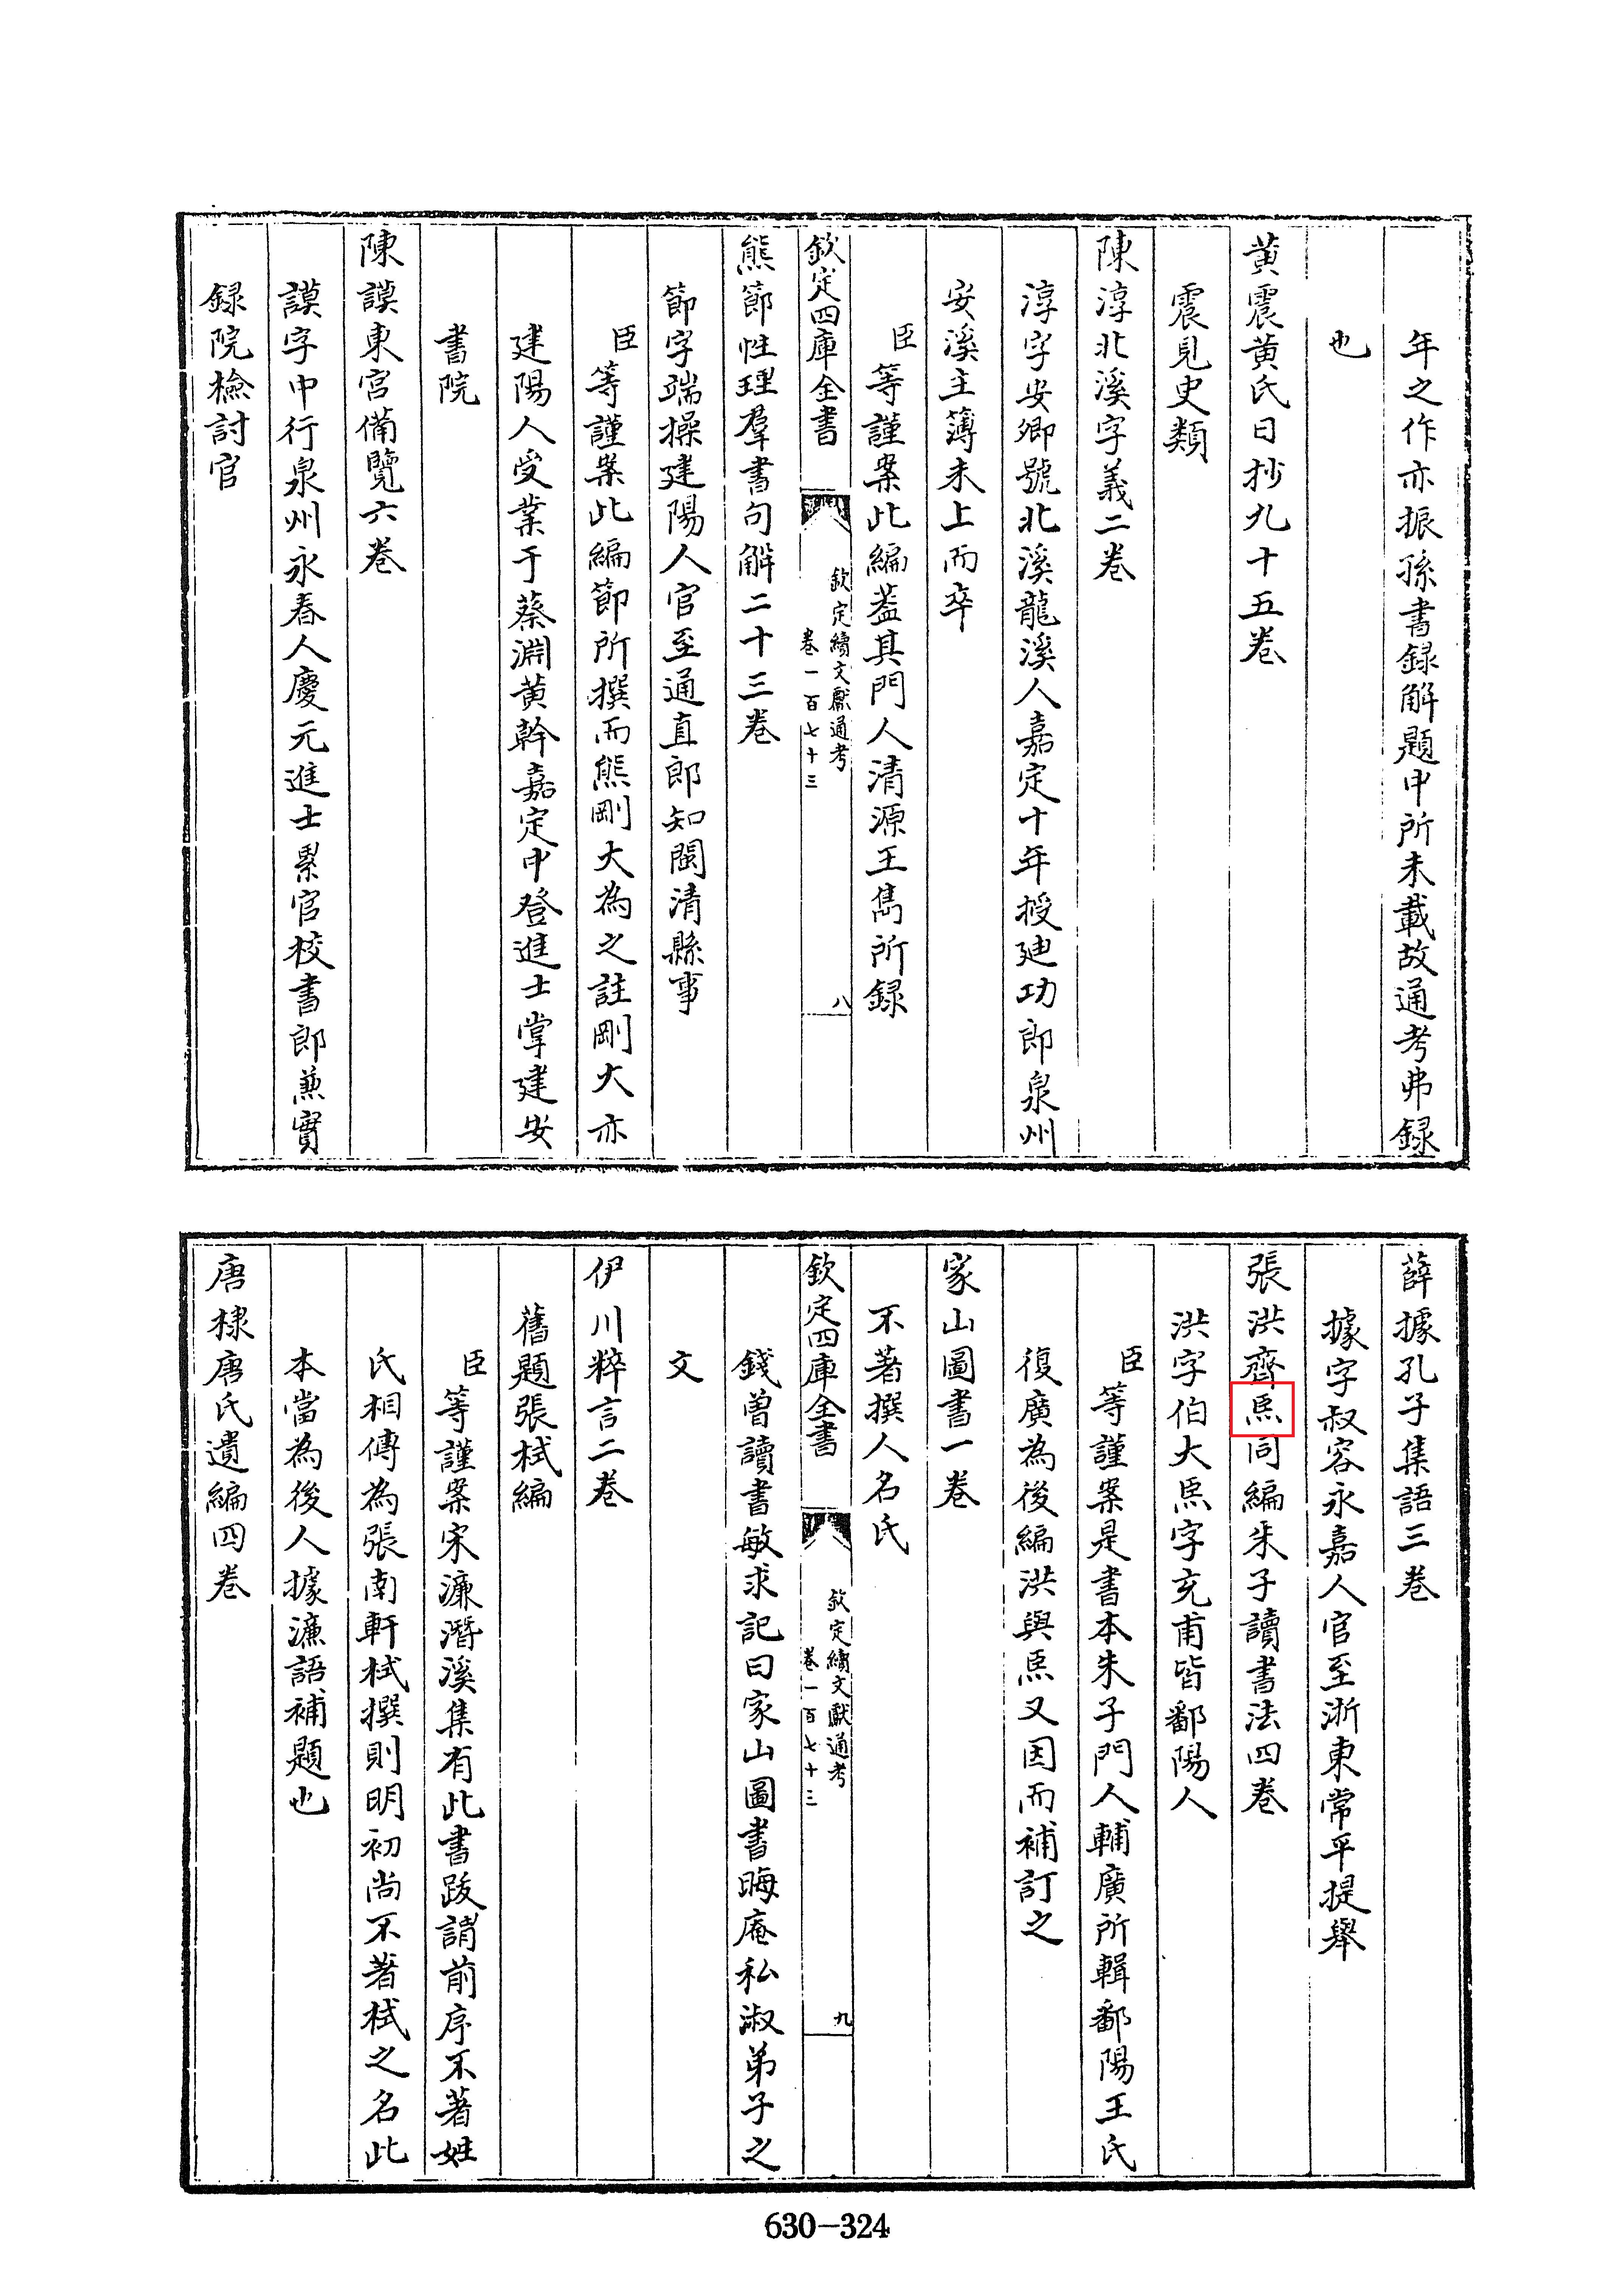 年之作亦振孫書録解題中所未載故通考弗録
也
黄震黄氏日抄九十五卷
震見史類
陳淳北溪字義二卷
淳字安卿號北溪龍溪人嘉定十年授廸功郎泉州
安溪主簿未上而卒
臣等謹案此編葢其門人清源王雋所録
欽定四庫全書
欽定續文獻通考
卷一百七十三
八
熊節性理羣書句解二十三卷
節字端操建陽人官至通直郎知閩清縣事
臣等謹案此編節所撰而熊剛大為之註剛大亦
建陽人受業于蔡淵黄幹嘉定中登進士掌建安
書院
陳謨東宫備覽六卷
謨字中行泉州永春人慶元進士累官校書郎兼實
録院檢討官
薛據孔子集語三卷
據字叔容永嘉人官至浙東常平提舉
張洪齊𤋮同編朱子讀書法四卷
洪字伯大𤋮字充甫皆鄱陽人
臣等謹案是書本朱子門人輔廣所輯鄱陽王氏
復廣為後編洪與𤋮又因而補訂之
家山圖書一卷
不著撰人名氏
欽定四庫全書
欽定續文獻通考
卷一百七十三
九
錢曾讀書敏求記曰家山圖書晦庵私淑弟子之
文
伊川粹言二卷
舊題張栻編
臣等謹案宋濂潛溪集有此書跋謂前序不著姓
氏相傳為張南軒栻撰則明初尚不著栻之名此
本當為後人據濂語補題也
唐棣唐氏遺編四卷
630-324